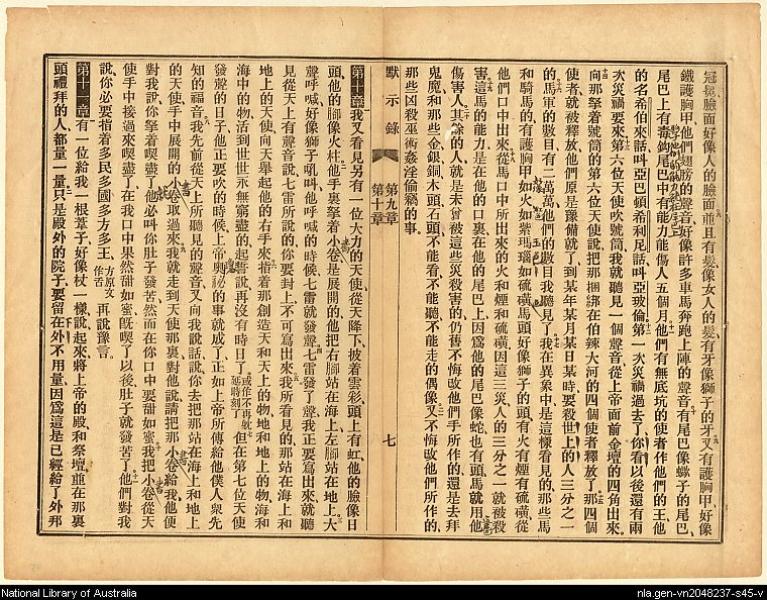 冠冕臉面好像人的臉面並且有髮像女人的髮有牙像獅子的牙又有護胸甲好像
鐵護胸甲他們翅膀的聲音好像許多車馬奔跑上陣的聲音有尾巴像蠍子的尾巴
尾巴上有毒鈎尾巴中有能力能傷人五個月他們有無底坑的使者作他們的王他
的名希伯來話呌亞巴頓希利尼話呌亞玻倫第一次災禍過去了你看以後還有兩
次災禍要來第六位天使吹號筒我就聽見一個聲音從上帝面前金壇的四角出來
向那拏着號筒的第六位天使說把那捆綁在伯辣大河的四個使者釋放了那四個
使者就被釋放他們原是豫備就了到某年某月某日某時要殺世上的人三分之一
的馬軍的數目有二萬萬他們的數目我聽見了我在異象中是這樣看見的那些馬
和騎馬的有護胸甲如火如紫瑪瑙如硫磺馬頭好像獅子的頭有火有煙有硫磺從
他們口中出來從馬口中所出來的火和煙和硫磺因這三災人的三分之一就被殺
害這馬的能力是在他的口裏在他的尾巴上因爲他的尾巴像蛇也有頭馬就用他
傷害人其餘的人就是未曾被這些災殺害的仍舊不悔改他們手所作的還是去拜
鬼魔和那些金銀銅木頭石頭不能看不能聽不能走的偶像又不悔改他們所作的
那些凶殺巫術姦淫偷竊的事
默示錄 第九章 第十章 七
第十章我又看見另有一位大力的天使從天降下披着雲彩頭上有虹他的臉像日
頭他的腳像火柱他手裏拏着小卷是展開的他把右腳站在海上左腳站在地上大
聲呼喊好像獅子吼叫他呼喊的時候七雷就發聲七雷發了聲我正要寫出來就聽
見從天上有聲音說七雷所說的你要封上不可寫出來我所看見的那站在海上和
地上的天使向天舉起他的右手來指着那創造天和天上的物地和地上的物海和
海中的物活到世世永無窮盡的起誓說再沒有時日了或作不再就延時刻了但在第七位天使
發聲的日子他正要吹的時候上帝奧祕的事就成了正如上帝所傳給他僕人衆先
知的福音我先前從天上所聽見的聲音又向我說話說你去把那站在海上和地上
的天使手中展開的小卷取過來我就走到天使那裏對他說請把那小卷給我他便
對我說你拏着喫盡了他必叫你肚子發苦然而在你口中要甜如蜜我把小卷從天
使手中接過來喫盡了在我口中果然甜如蜜旣喫了以後肚子就發苦了他們對我
說你必要指着多民多國多方多王方原文作舌再說豫言
第十一章有一位給我一根葦子好像杖一樣說起來將上帝的殿和祭壇並在那裏
頭禮拜的人都量一量只是殿外的院子要留在外不用量因爲這是已經給了外邦
National Library of Australia
nla.gen-vn2048237-s45-v